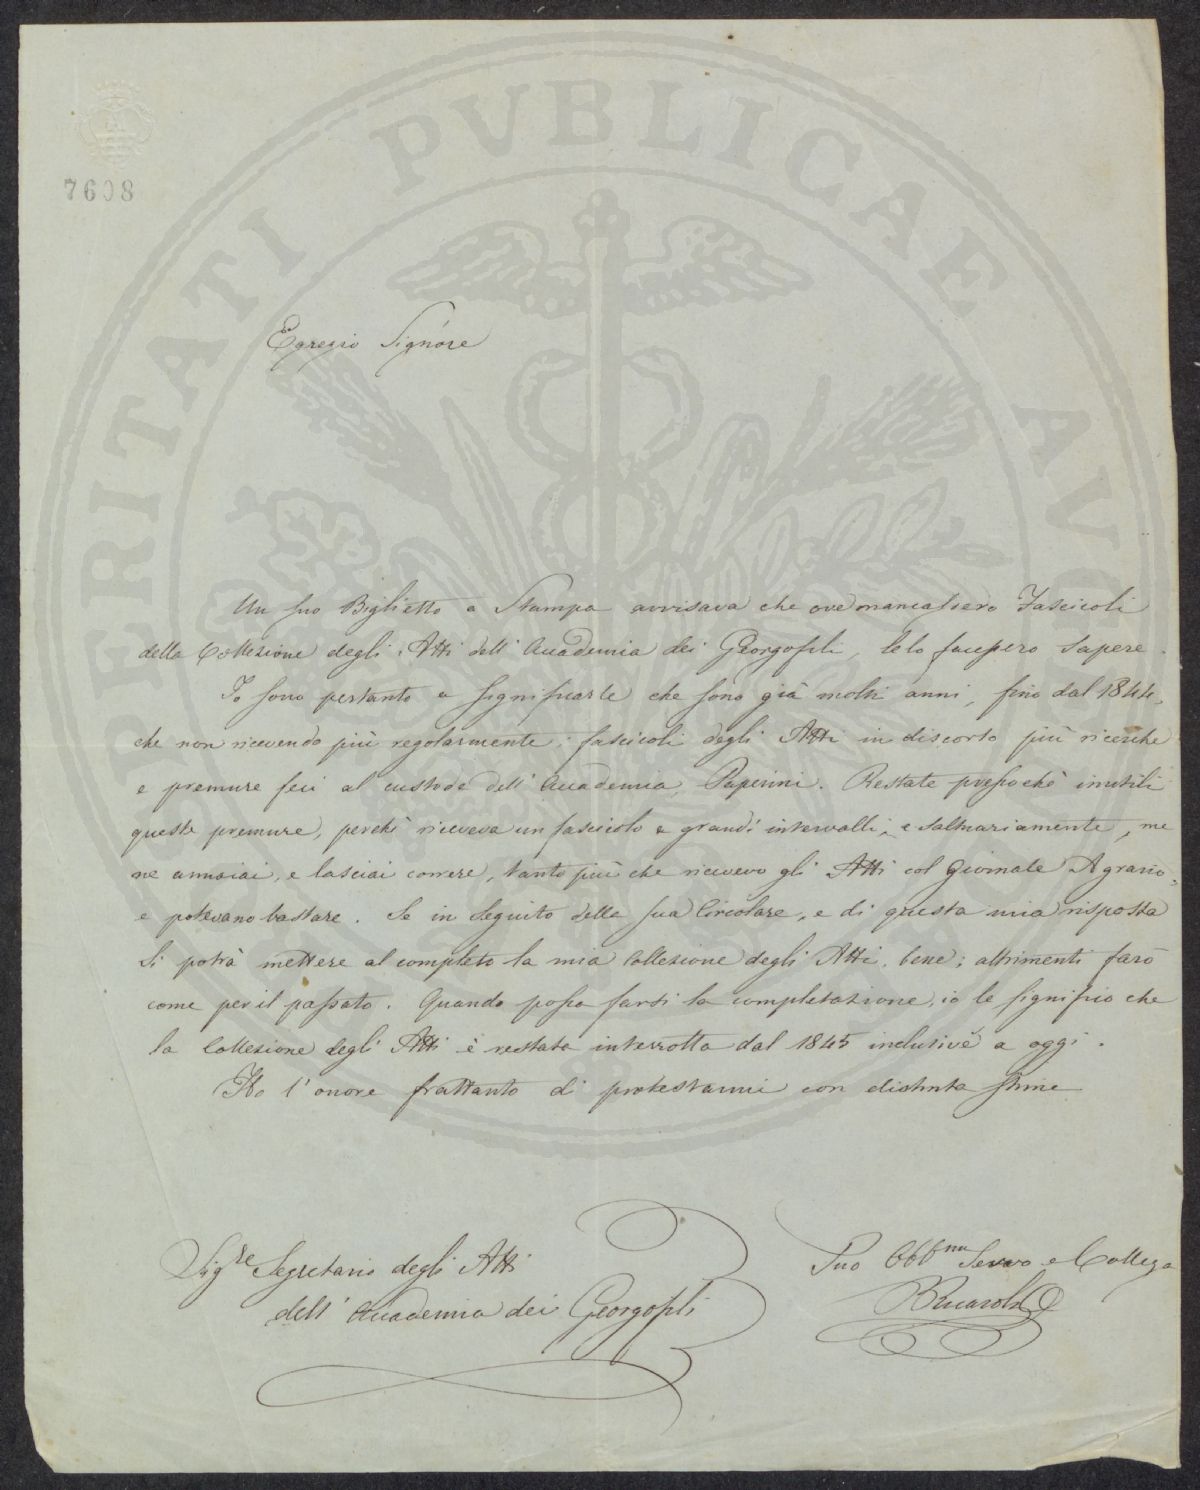 PROSPERITATI PUBLICAE AUGENDAE
7608
Egregio Signore
Un suo Biglietto a Stampa avvisava che ove mancassero Fascicoli
della Collezione degli Atti dell' Accademia dei Georgofili, le lo facessero sapere.
Io sono pertanto a significarle che sono già molti anni, fino dal 1844,
che non ricevendo più regolarmente i fascicoli degli Atti in discorso più ricerche
e premure feci al custode dell' Accademia, Paperini. Restate pressochè inutili
queste premure, perchè riceveva un fascicolo a grandi intervalli, e saltuariamente, me
ne annoiai, e lasciai correre, tanto più che ricevevo gli Atti col Giornale Agrario,
e potevano bastare. Se in seguito della sua Circolare, e di questa mia risposta
si potrà mettere al completo la mia Collezione degli Atti, bene; altrimenti farò
come per il passato. Quando possa farsi la completazione, io le significo che
la Collezione degli Atti è restata interrotta dal 1845 inclusive a oggi.
Ho l'onore frattanto di protestarmi con distinta stima
Sig.re Segretario degli Atti
dell' Accademia dei Georgofili
Suo Obb.mo Servo e Collega
BRicasoli